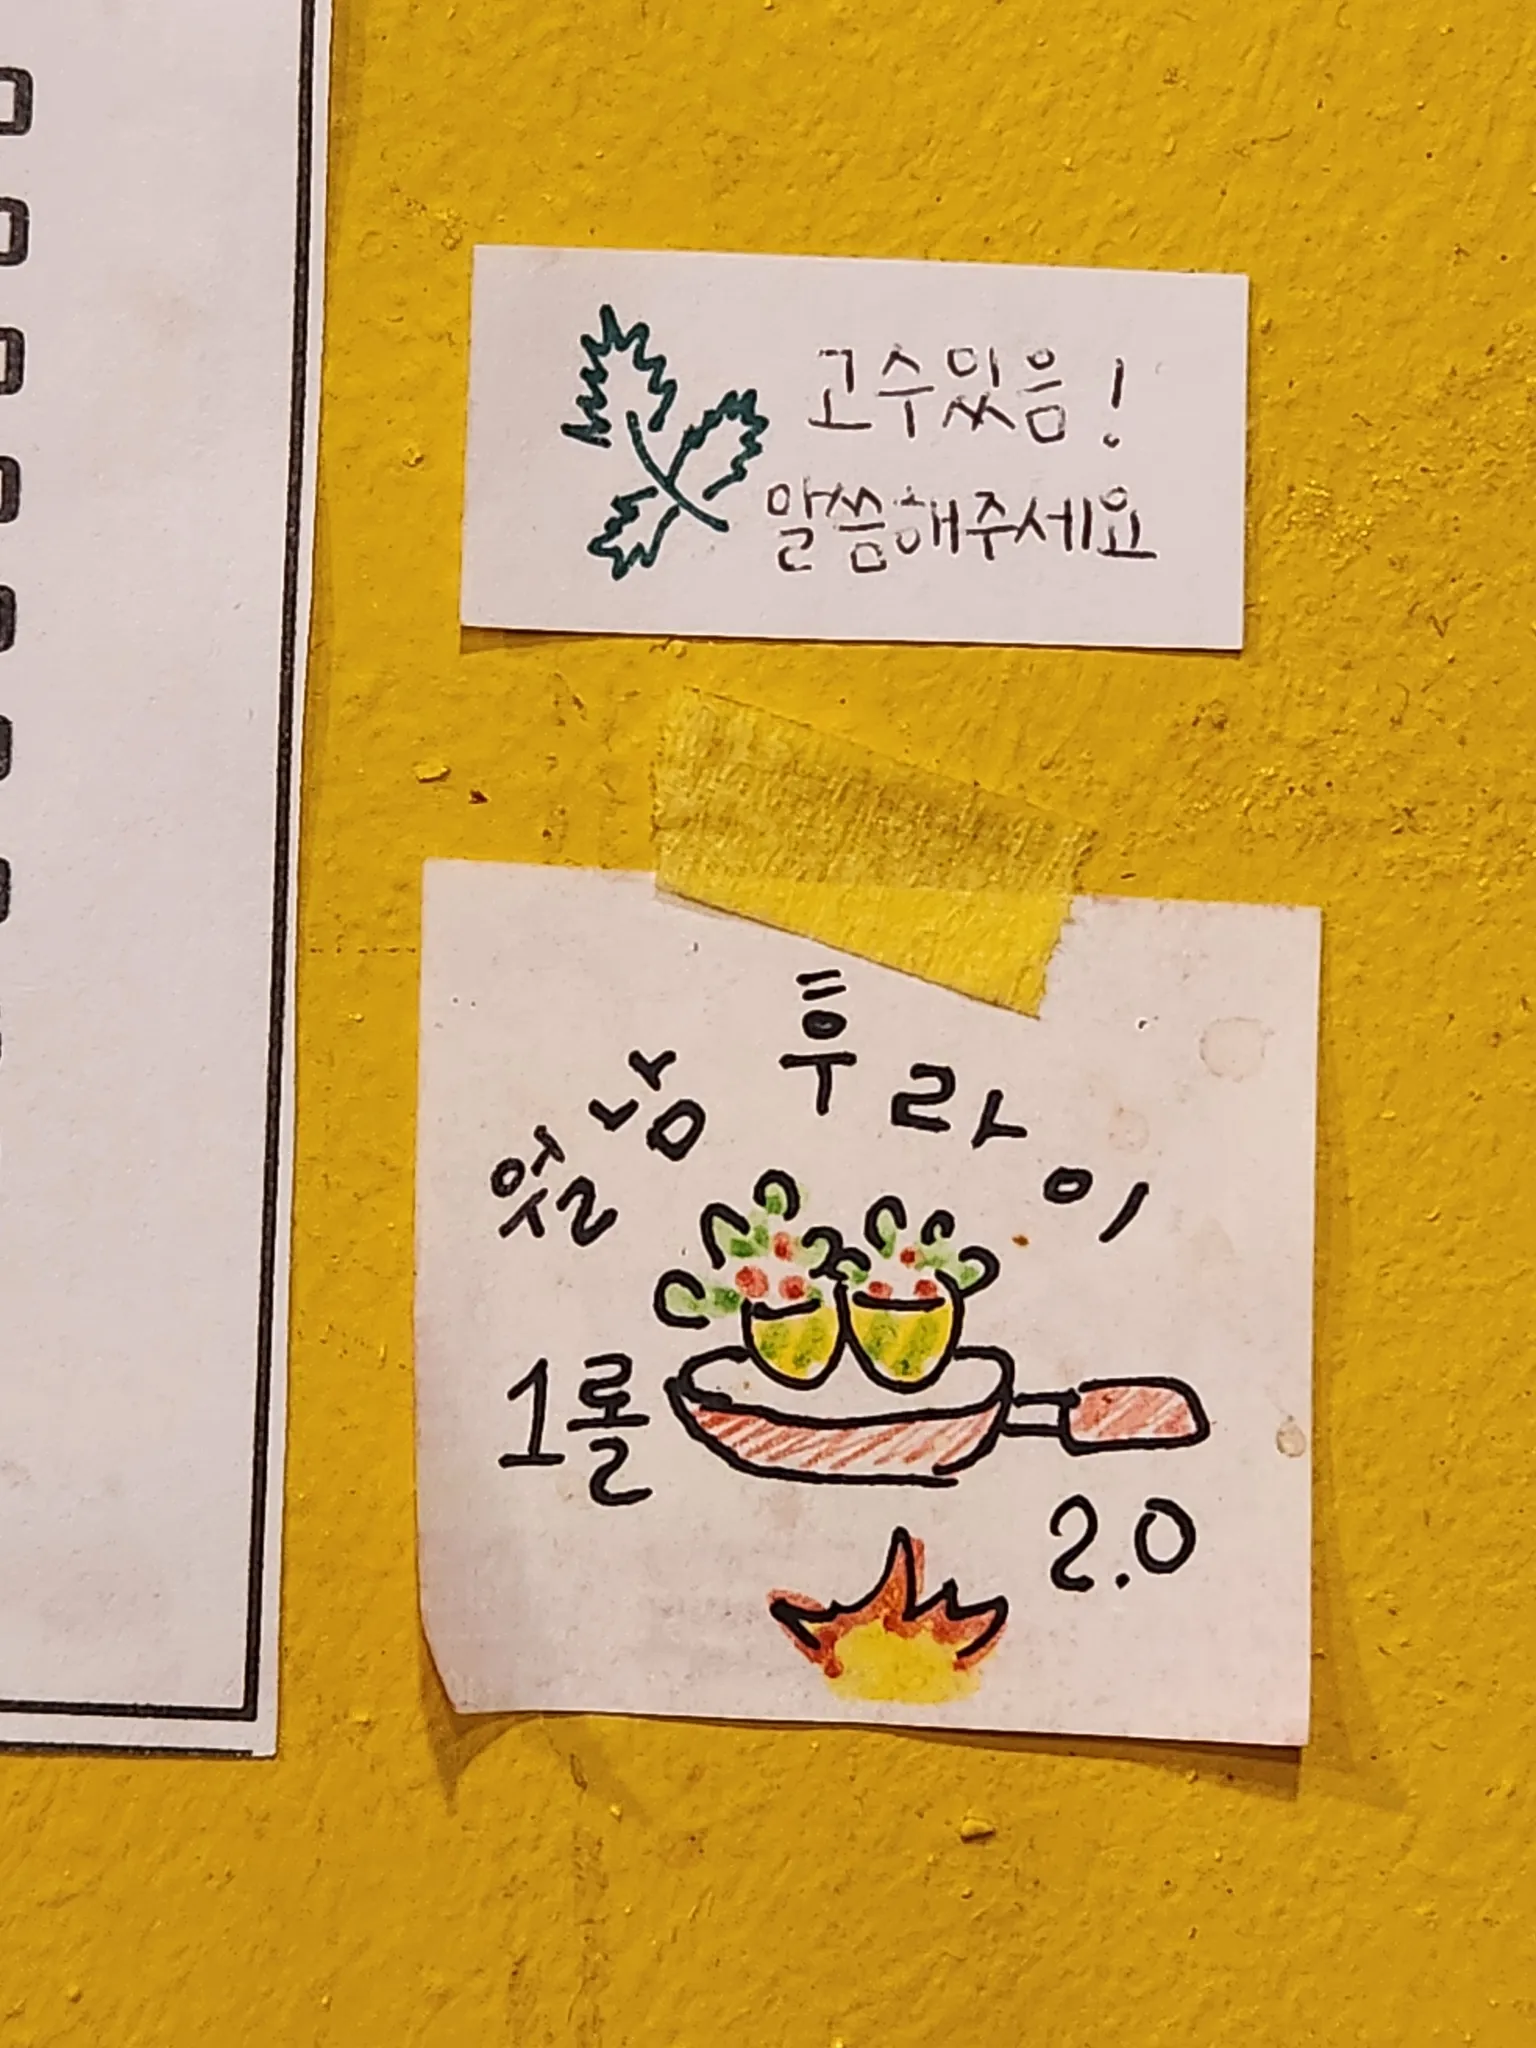 고수있음!
말씀해주세요
월남 후라이
1롤
2.0